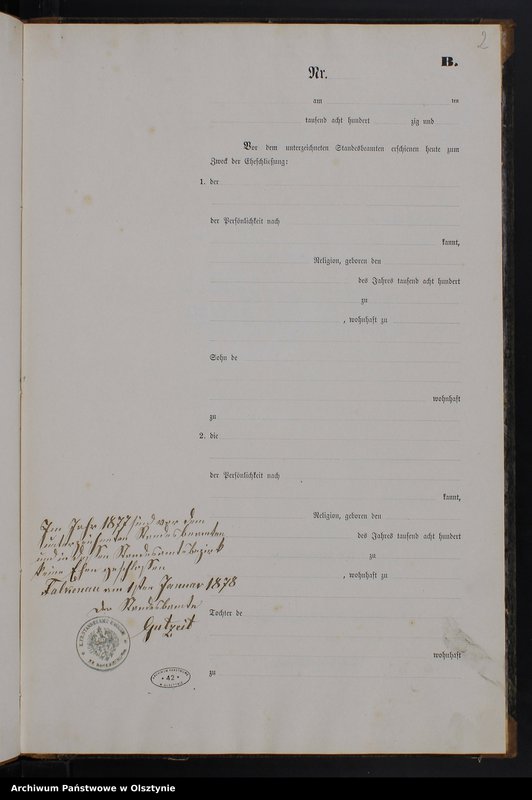 2
B.
Nr.
am ten
tausend acht hundert zig und
Vor dem unterzeichneten Standesbeamten erschienen heute zum
Zweck der Eheschließung:
1. der
der Persönlichkeit nach
kannt,
Religion, geboren den
des Jahres tausend acht hundert
zu
, wohnhaft zu
Sohn de
wohnhaft
zu
2. die
der Persönlichkeit nach
kannt,
Religion, geboren den
des Jahres tausend acht hundert
zu
, wohnhaft zu
Tochter de
wohnhaft
zu
Im Jahr 1877 sind vor dem
unterzeichneten Standesbeamten
und in dessen Standesamtsbezirk
keine Ehen geschlossen
am 1ten Januar 1878
Der Standesbeamte
Gutzeit
42
Archiwum Państwowe w Olsztynie